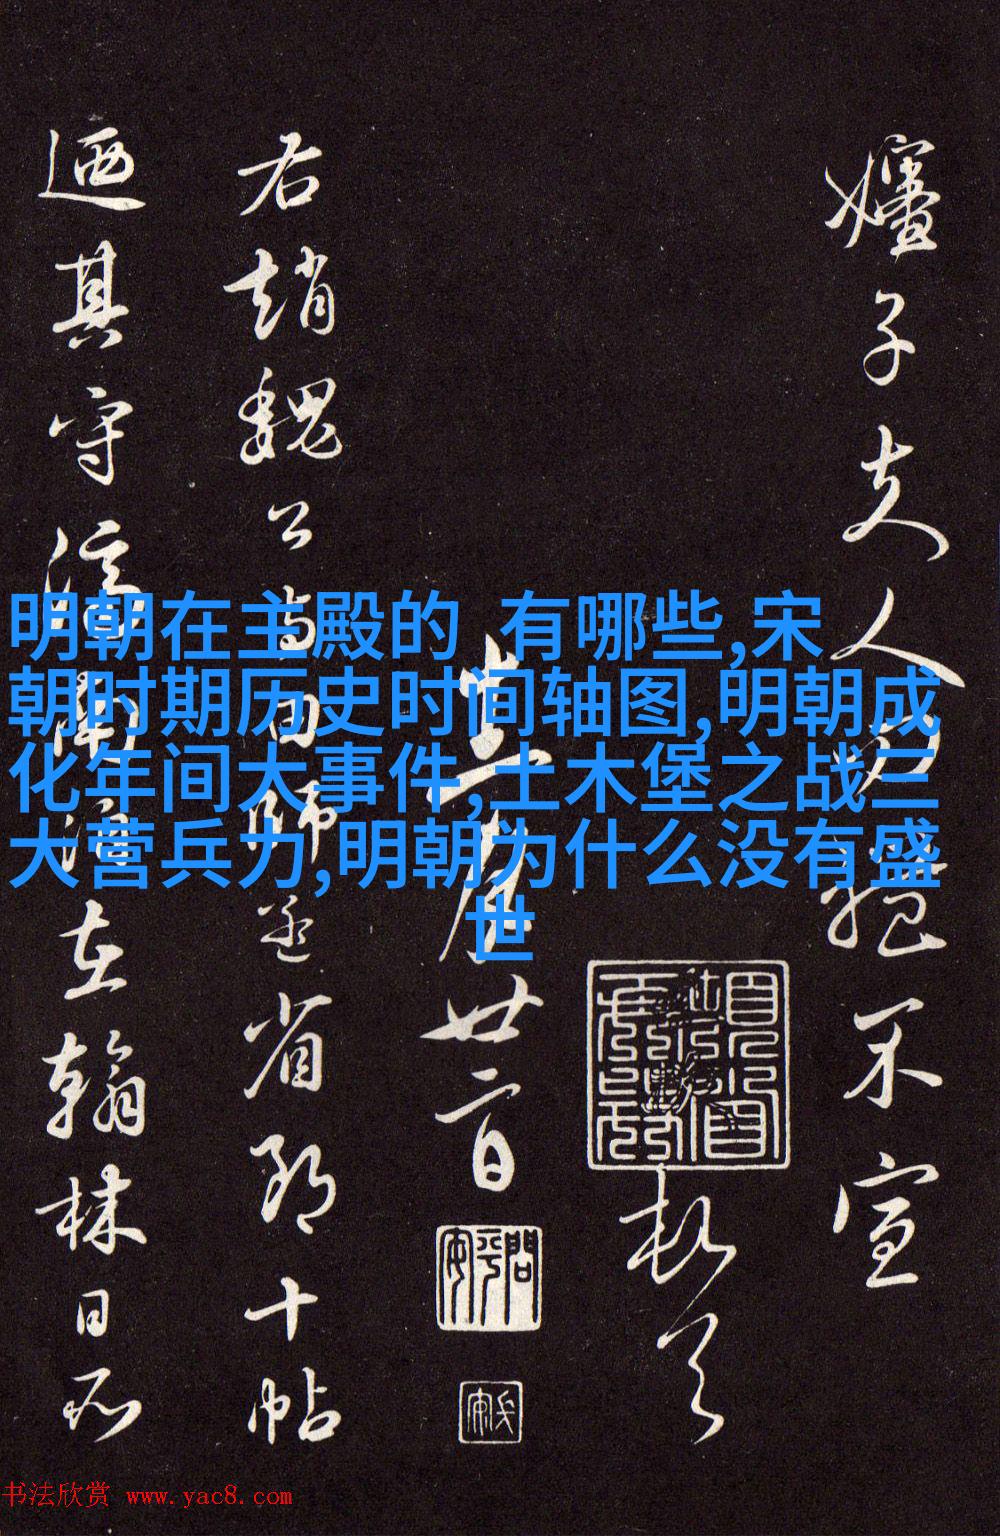 嬸子夫人
不宣
頓首
廿二日
右趙魏公
師孟省郎十帖
迺其守濟南
在翰林日所
明朝在主殿的 有哪些,宋
朝时期历史时间轴图,明朝成
化年间大事件,土木堡之战三
大营兵力,明朝为什么没有盛
世
书法欣赏 www.yac8.com